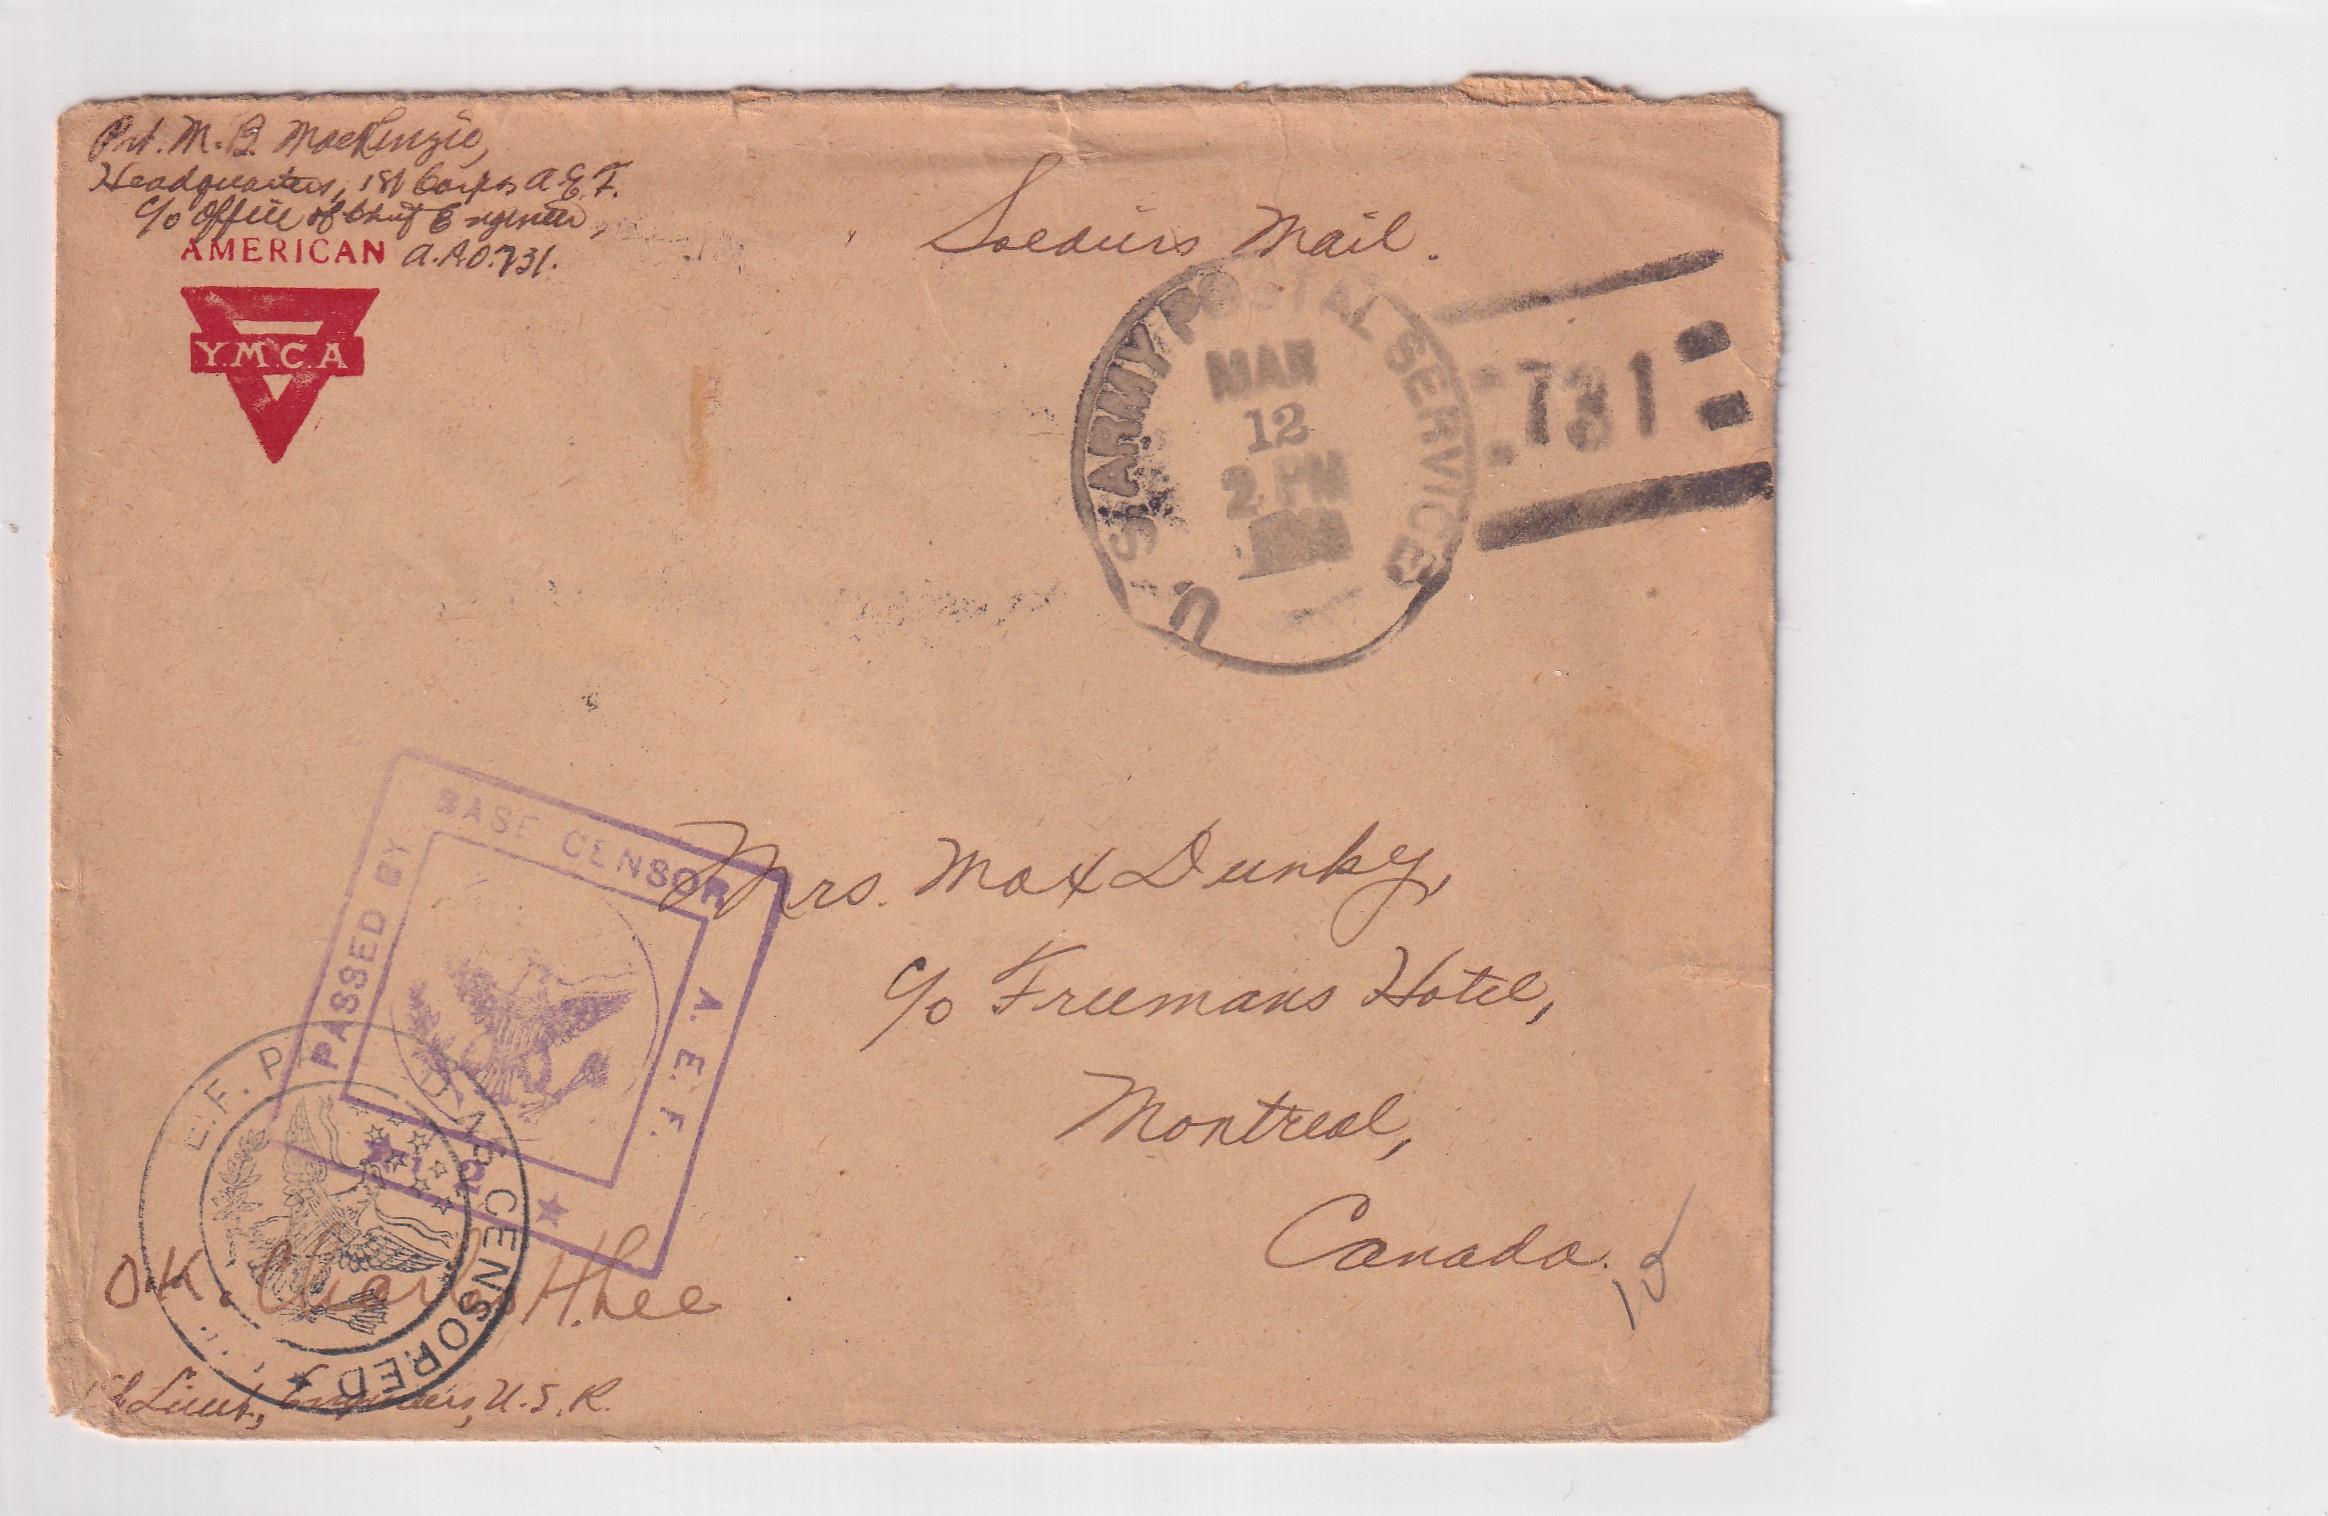 Pvt. M. B. MacKenzie,
Headquarters, 1st Corps A.E.F.
c/o Office of Chief Engineer,
A.P.O. 731.
AMERICAN
Y.M.C.A
Soldiers Mail.
U.S. ARMY POSTAL SERVICE
MAR
12
2 PM
731
PASSED BY BASE CENSOR A.E.F.
Mrs. Max Dunky,
c/o Freemans Hotel,
Montreal,
Canada.
E.F. CENSORED
O.K. Charles H. Lee
1st Lieut., Engineers, U.S.R.